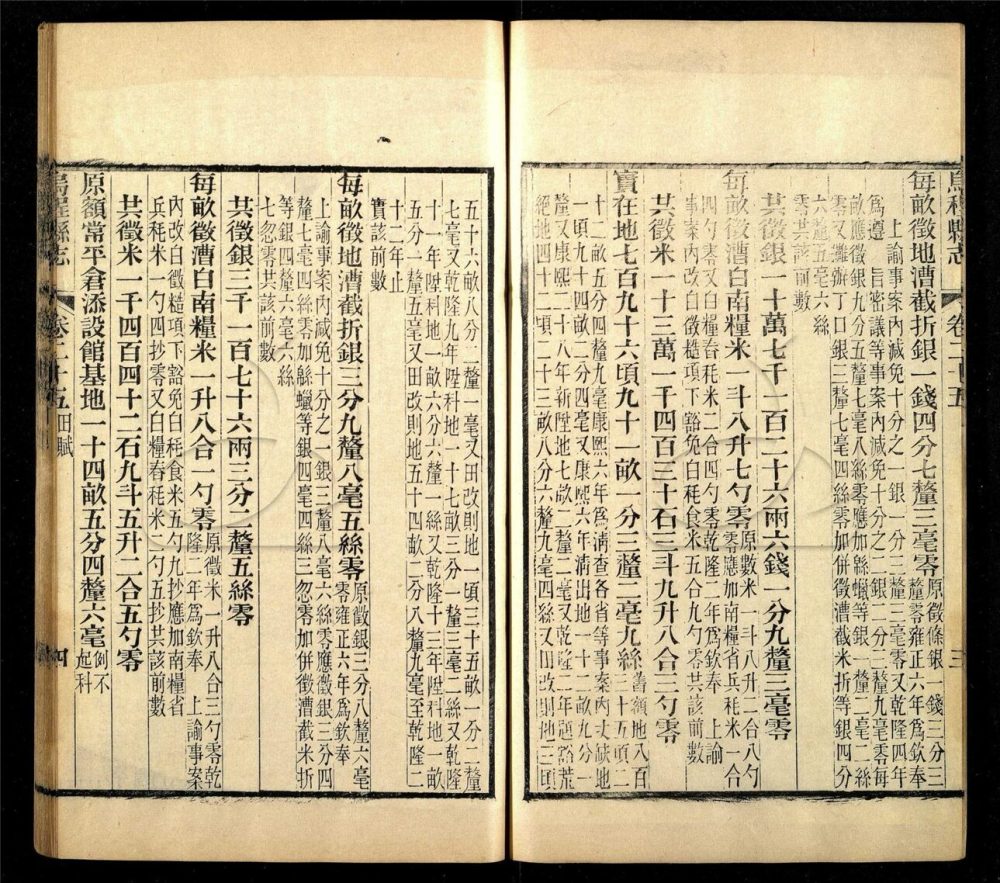 烏程縣志
卷二十五
三
每畝徵地漕截折銀一錢四分七釐三毫零
原徵條銀一錢三分三
釐零雍正六年爲欽奉
上諭事案內減免十分之一銀一分三釐三毫零又乾隆四年
爲遵 旨密議等事案內減免十分之二銀二分三釐九毫零每
畝應徵銀九分五釐七毫八絲零應加顏蠟等銀一釐二毫二絲
零又攤徵丁口銀三釐七毫四絲零加併徵漕截米折等銀四分
六釐五毫六絲
零共該前數
共徵銀一十萬七千一百二十六兩六錢一分九釐三毫零
每畝徵漕白南糧米一斗八升七勺零
原數米一斗八升二合八勺
零應加南糧省兵秏米一合
四勺零又白糧舂秏米二合四勺零乾隆二年爲欽奉 上諭
事案內改白徵糙項下豁免白秏食米五合九勺零共該前數
共徵米一十三萬一千四百三十石三斗九升八合三勺零
實在地七百九十六頃九十一畝一分三釐二毫九絲
舊額地八百
三十五頃二
十二畝五分四釐九毫康熙六年爲淸查各省等事案內丈缺地
一頃九十四畝二分四毫又康熙六年淸出地一十二畝九分一
釐又康熙二十八年新陞地七畝二釐二毫又乾隆二年題豁荒
絕地四十二頃二十三畝八分六釐九毫四絲又田改則地三頃
五十六畝八分二釐一毫又田改則地一頃三十五畝一分二釐
七毫又乾隆九年陞科地一十七畝三分一釐三毫二絲又乾隆
十一年陞科地一畝六分六釐一絲又乾隆十三年陞科地一畝
五分一釐五毫又田改則地五十四畝二分八釐九毫至乾隆二
十二年止
實該前數
每畝徵地漕截折銀三分九釐八毫五絲零
原徵銀三分八釐六毫
零雍正六年爲欽奉
上諭事案內減免十分之一銀三釐八毫六絲零應徵銀三分四
釐七毫四絲零加顏蠟等銀四毫四絲三忽零加併徵漕截米折
等銀四釐六毫六絲
七忽零共該前數
共徵銀三千一百七十六兩三分二釐五絲零
每畝徵漕白南糧米一升八合一勺零
原徵米一升八合三勺零乾
隆二年爲欽奉 上諭事案
內改白徵糙項下豁免白秏食米五勺九抄應加南糧省
兵秏米一勺四抄零又白糧舂秏米二勺五抄共該前數
共徵米一千四百四十二石九斗五升二合五勺零
原額常平倉添設館基地一十四畝五分四釐六毫
例不
起科
烏程縣志
卷二十五 田賦
四